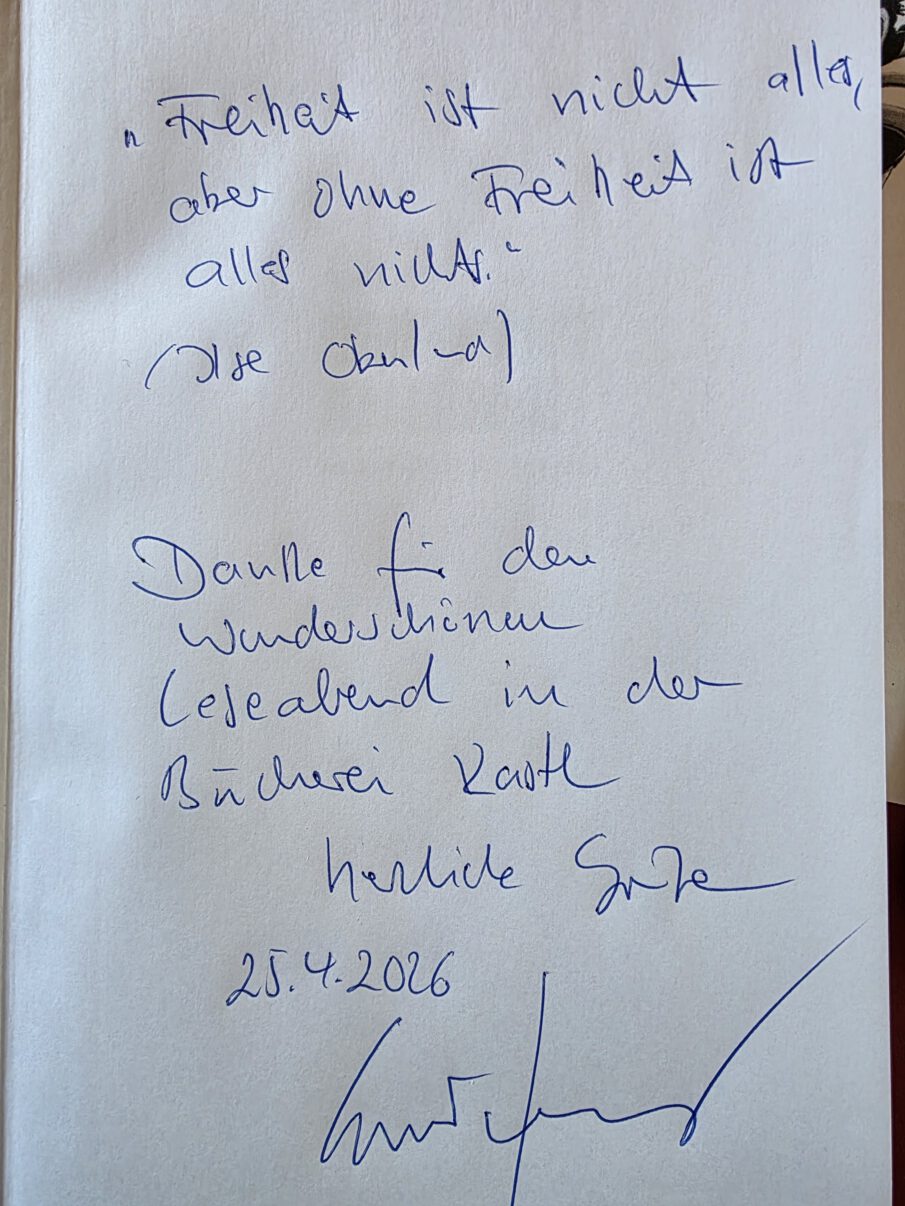 „Freiheit ist nicht alles,
aber ohne Freiheit ist
alles nichts."
(Ilse
Danke für den
wunderschönen
Leseabend in der
Bücherei Kastl
herzliche Grüße
25.4.2026